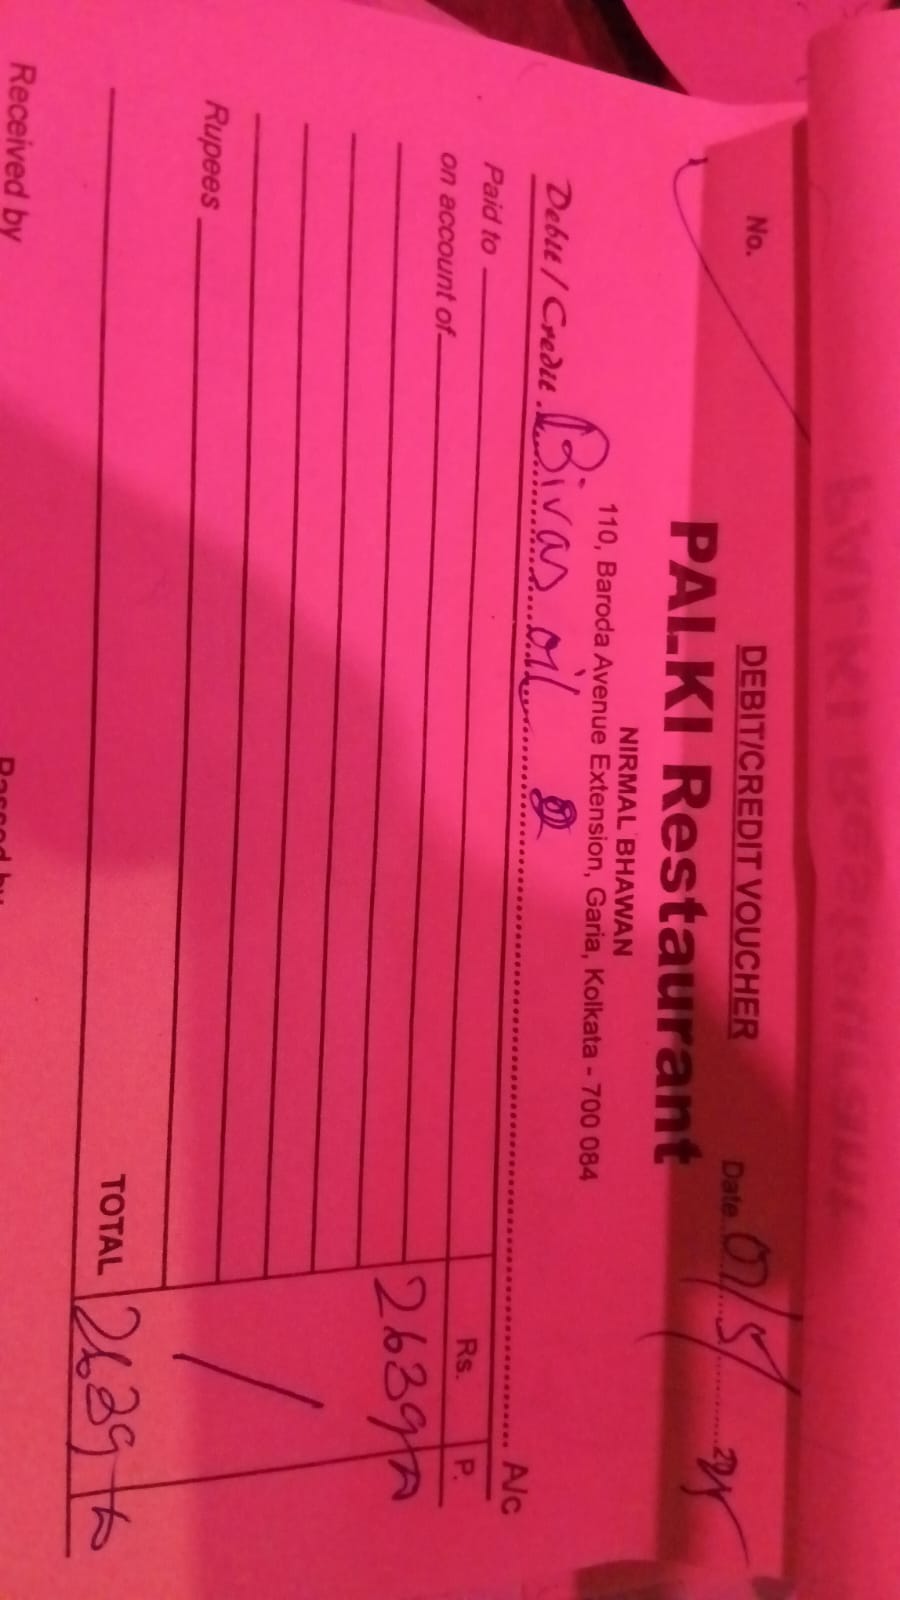 DEBIT/CREDIT VOUCHER
No. Date 07/5/
PALKI Restaurant
NIRMAL BHAWAN
110, Baroda Avenue Extension, Garia, Kolkata - 700 084
Debit / Credit Bivas oil A/c
Paid to Rs. P.
on account of 2639
Rupees
TOTAL 2639
Received by Passed by